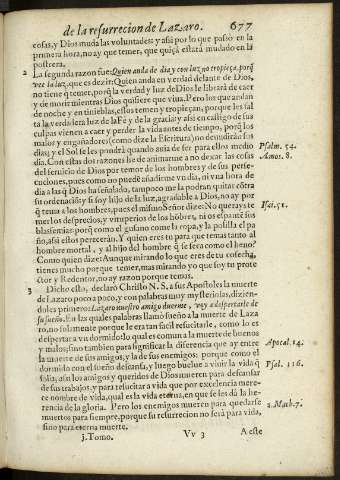 de la resurreccion de Lazaro. 677
cosas, y Dios muda las voluntades: y assi por lo que passò en la
primera hora, no ay que temer, que quiçà estarà mudado en la
postrera.
2 La segunda razon fue: Quien anda de dia y con luz no tropieça, porq̃
vee la luz, que es dezir: Quien anda en verdad delante de Dios,
no tiene q̃ temer, porq̃ la verdad y luz de Dios le librarà de caer
y de morir mientras Dios quisiere que viua. Pero los que andan
de noche y en tinieblas, essos temen y tropieçan, porque les fal
ta la verdadera luz de la Fè y de la gracia: y assi en castigo de sus
culpas vienen a caer y perder la vida antes de tiempo, porq̃ los
malos y engañadores (como dize la Escritura) no demidiaràn sus Psalm. 54.
dias; y el Sol se les pondrà quando auia de ser para ellos medio Amos. 8.
dia. Con estas dos razones he de animarme a no dexar las cosas
del seruicio de Dios por temor de los hombres y de sus perse-
cuciones, pues como no puedẽ añadirme vn dia, ni vna hora de
dia a las q̃ Dios ha señalado, tampoco me la podràn quitar cõtra
su ordenaciõ; y si soy hijo de la luz, agradable a Dios, no ay por
q̃ tema a los hombres, pues el mismo Señor dize: No querays te Isai. 51.
mer los desprecios, y vituperios de los hõbres, ni os espantẽ sus
blasfemias: porq̃ como el gusano come la ropa, y la polilla el pa
ño, assi estos pereceràn. Y quien eres tu para que temas tanto al
hombre mortal, y al hijo del hombre q̃ se sera como el heno?
Como quien dize: Aunque mirando lo que eres de tu cosecha,
tienes mucho porque temer, mas mirando yo que soy tu prote
ctor y Redentor, no ay razon porque temas.
3 Dicho esto, declarò Christo N. S. a sus Apostoles la muerte
de Lazaro poco a poco, y con palabras muy mysteriosas, dizien-
doles primero: Lazaro nuestro amigo duerme, voy a despertarle de
su sueño. En las quales palabras llamò sueño a la muerte de Laza
ro, no solamente porque le era tan facil resucitarle, como lo es
despertar a vn dormido: lo qual es comun a la muerte de buenos
y malos; sino tambien para significar la diferencia que ay entre Apocal. 14.
la muerte de sus amigos, y la de sus enemigos: porque como el
dormido con el sueño descansa, y luego buelue a viuir la vida q̃ Psal. 116.
solia, assi los amigos y queridos de Dios mueren para descansar
de sus trabajos, y para resucitar a vida que por excelencia mere-
ce nombre de vida, qual es la vida eterna, en que se les dà la he-
rencia de la gloria. Pero los enemigos mueren para quedarse 2. Mach. 7.
muertos para siempre, porque su resurreccion no serà para vida,
sino para eterna muerte.
j. Tomo. Vv 3 A este